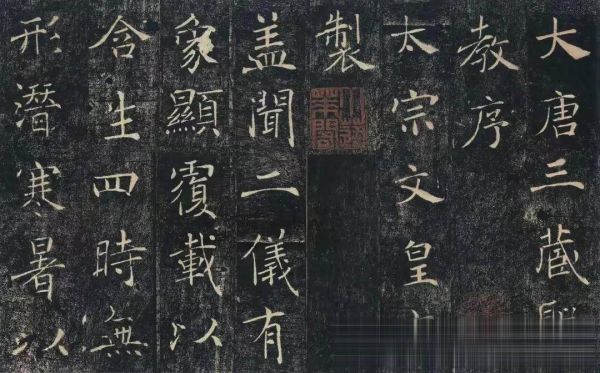 大唐三藏聖
教序
太宗文皇
製
小蓬萊閣
盖聞二儀有
象顯覆載以
含生四時無
形潛寒暑以